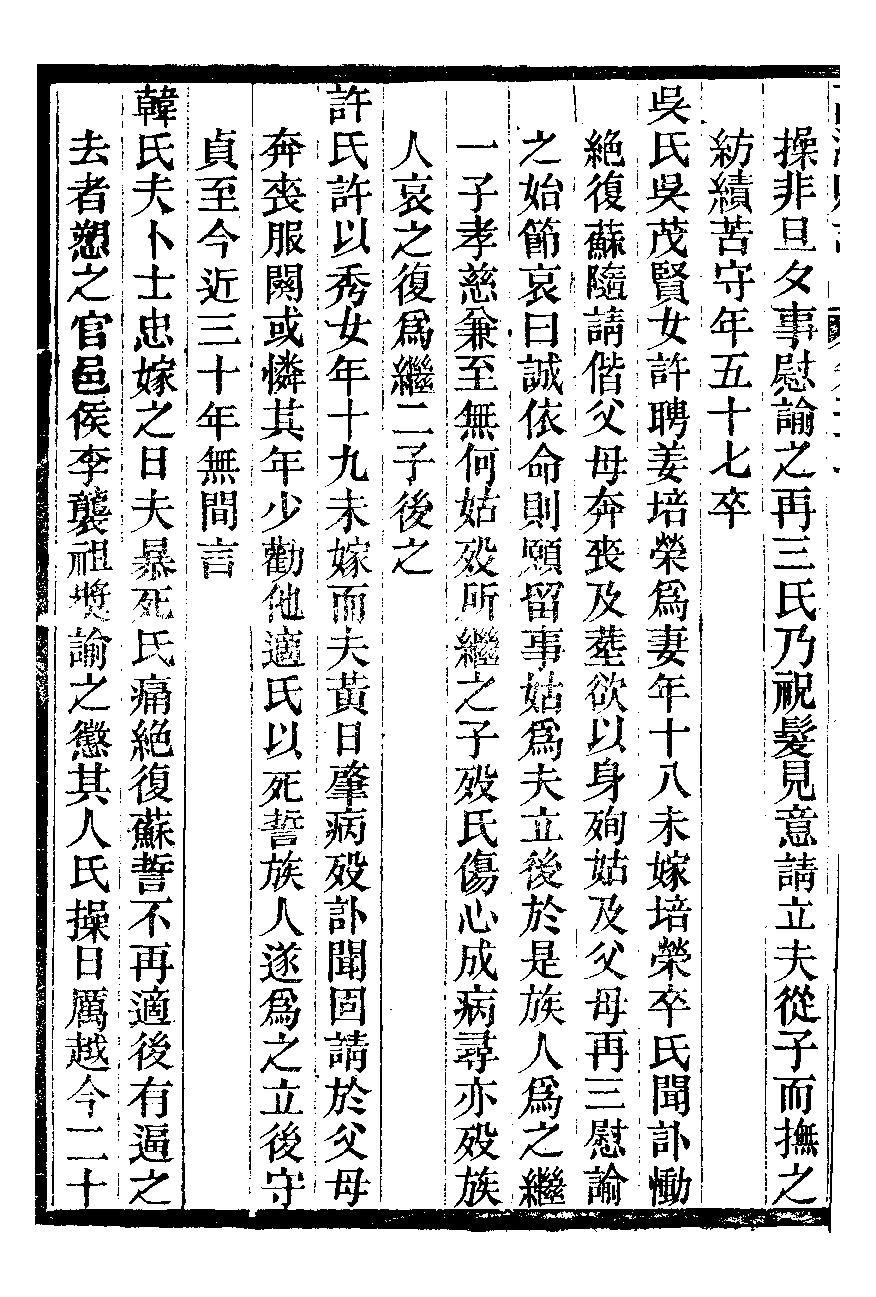 操非旦夕事慰諭之再三氏乃祝髮見意請立夫從子而撫之
紡績苦守年五十七卒
吳氏吳茂賢女許聘姜培榮爲妻年十八未嫁培榮卒氏聞訃慟
絶復蘇隨請偕父母奔喪及塟欲以身殉姑及父母再三慰諭
之始節哀曰誠依命則願留事姑爲夫立後於是族人爲之繼
一子孝慈兼至無何姑殁所繼之子殁氏傷心成病尋亦殁族
人哀之復爲繼二子後之
許氏許以秀女年十九未嫁而夫黃日肇病殁訃聞固請於父母
奔喪服闋或憐其年少勸他適氏以死誓族人遂爲之立後守
貞至今近三十年無間言
韓氏夫卜士忠嫁之日夫暴死氏痛絶復蘇誓不再適後有逼之
去者愬之官邑侯李襲祖奬諭之懲其人氏操日厲越今二十